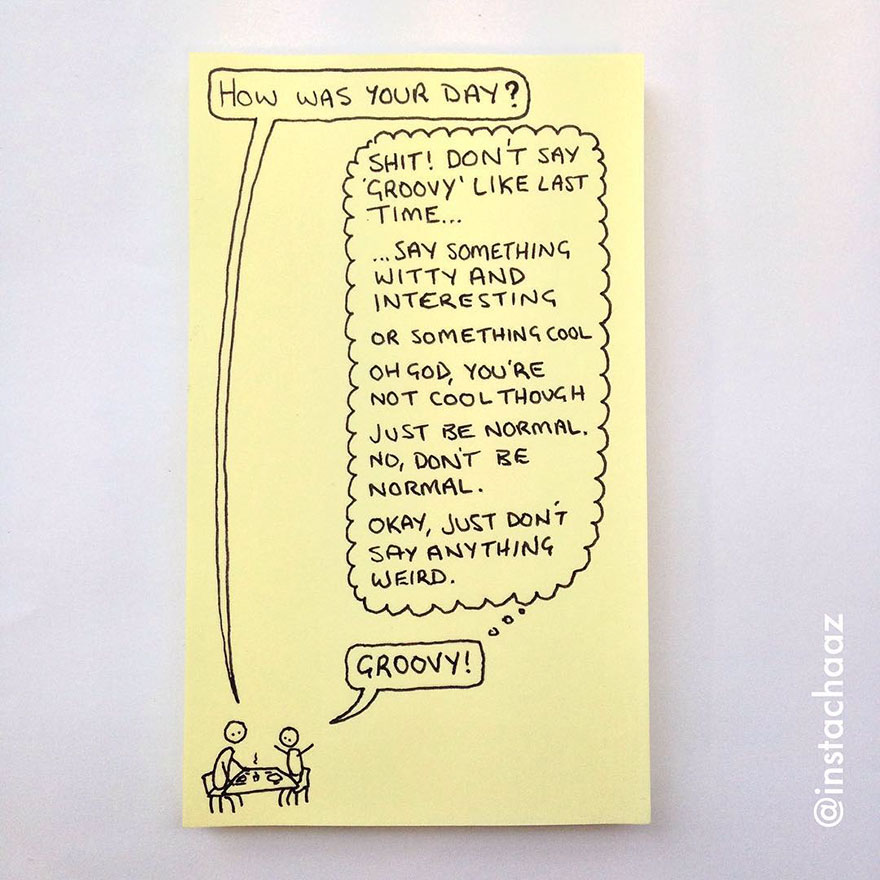 HOW WAS YOUR DAY?
SHIT! DON'T SAY
'GROOVY' LIKE LAST
TIME...
...SAY SOMETHING
WITTY AND
INTERESTING
OR SOMETHING COOL
OH GOD, YOU'RE
NOT COOL THOUGH
JUST BE NORMAL.
NO, DON'T BE
NORMAL.
OKAY, JUST DON'T
SAY ANYTHING
WEIRD.
GROOVY!
@instachaaz